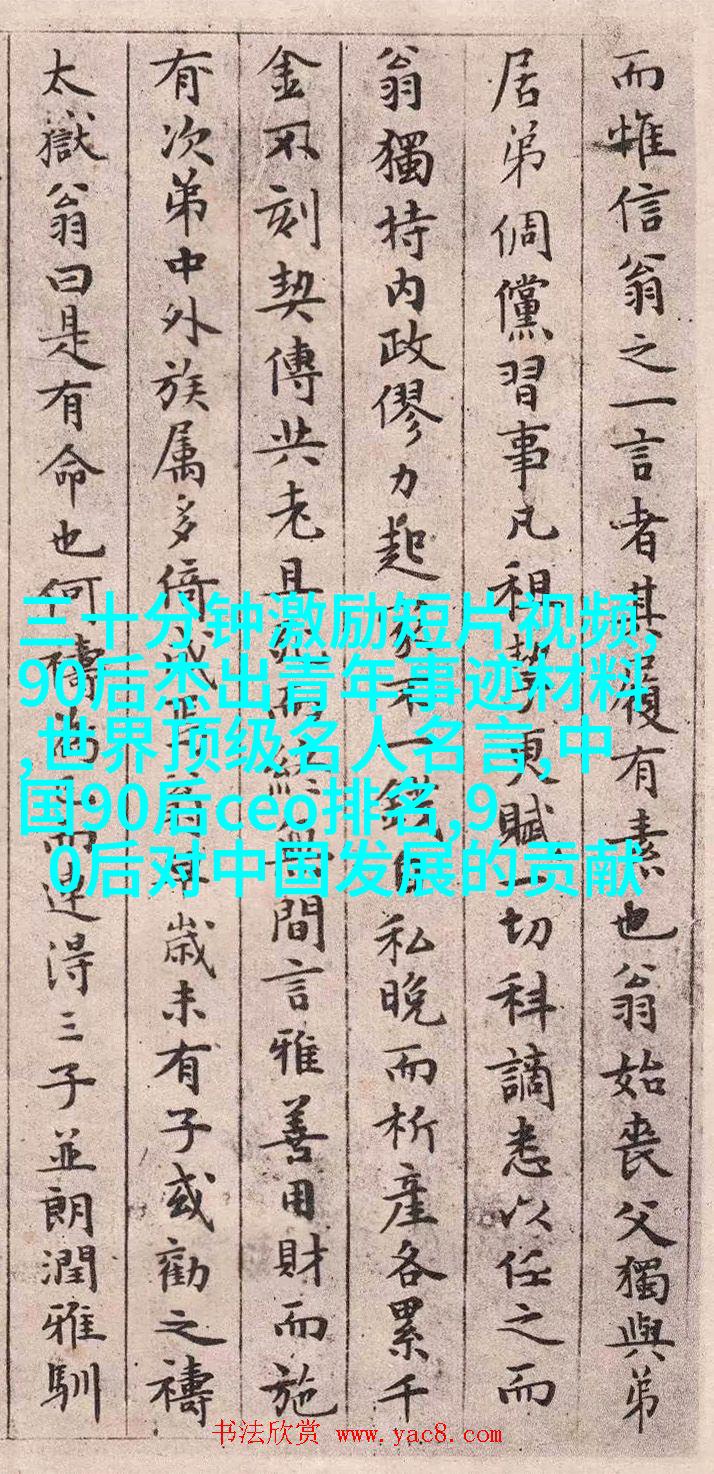 而惟信翁之一言者其履有素也翁始喪父獨與弟
居弟倜儻習事凡租更賦一切科謫悉以任之而
翁獨持内政僇力起不一錢私晚而析產各累千
金不刻契傳共老且無間言雅善用財而施
有次第中外族属多倚歲未有子或勸之禱
太嶽翁曰是有命也何禱而連得三子並朗潤雅馴
三十分钟激励短片视频,
90后杰出青年事迹材料
,世界顶级名人名言,中
国90后ceo排名,9
0后对中国发展的贡献
书法欣赏 www.yac8.com